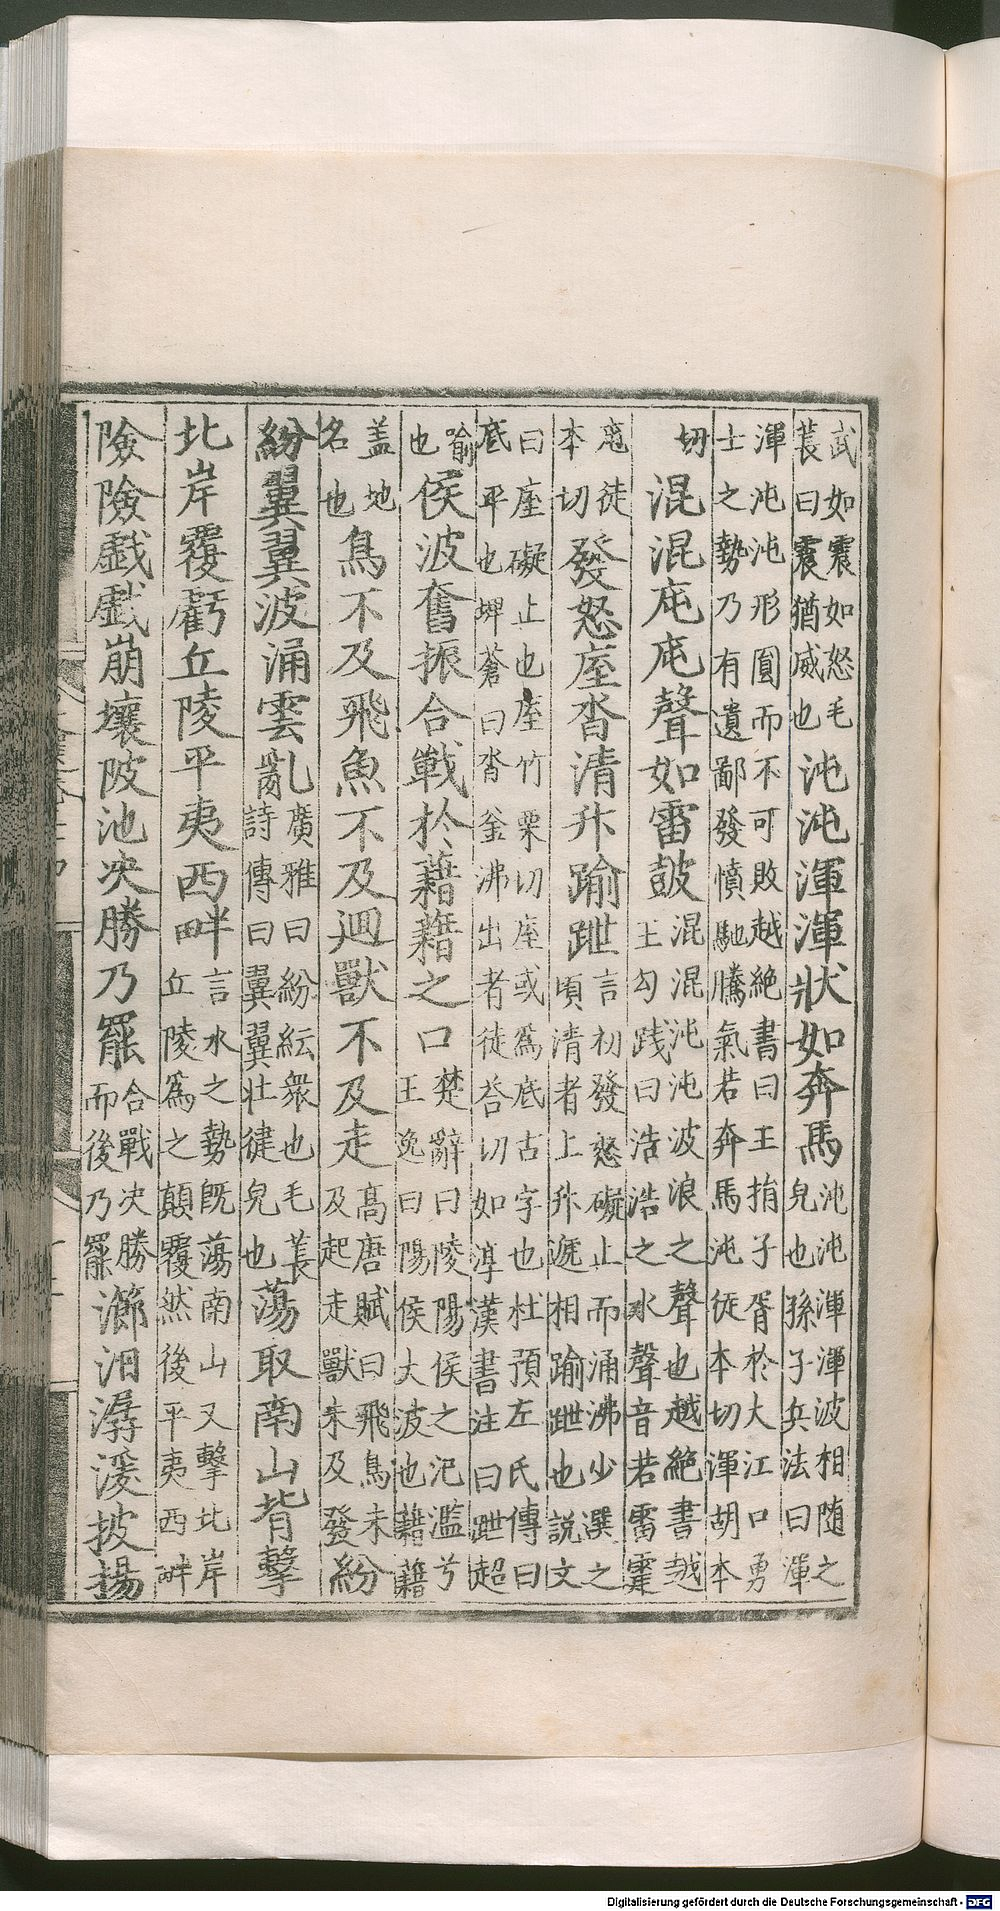 武如震如怒毛萇曰震猶威也沌沌渾渾狀如奔馬沌沌渾渾波相随之皃也孫子兵法曰渾
渾沌沌形圎而不可敗越絶書曰王捐子胥於大江口勇士之勢乃有遺鄙發憤馳騰氣若奔馬沌徒本切渾胡本
切混混庉庉聲如雷鼓混混沌沌波浪之聲也越絶書越王勾践曰浩浩之水聲音若雷霆
庉徒本切發怒庢沓清升踰跇言初發怒礙止而涌沸少選之頃清者上升遞相踰跇也説文
曰庢礙止也庢竹栗切庢或爲底古字也杜預左氏傳曰底平也埤蒼曰沓釜沸出者徒荅切如淳漢書注曰跇超
踰也侯波奮振合戰於藉藉之口楚辭曰陵陽侯之氾濫兮王逸曰陽侯大波也藉藉
盖地名也鳥不及飛魚不及迴獸不及走高唐賦曰飛鳥未及起走獸未及發紛
紛翼翼波涌雲亂廣雅曰紛紜衆也毛萇詩傳曰翼翼壮健皃也蕩取南山背擊
北岸覆虧丘陵平夷西畔言水之勢既蕩南山又擊北岸丘陵爲之顛覆然後平夷西畔
險險戲戲崩壞陂池决勝乃罷合戰决勝而後乃罷瀄汨潺湲披揚
Digitalisierung gefördert durch die Deutsche Forschungsgemeinschaft - DFG